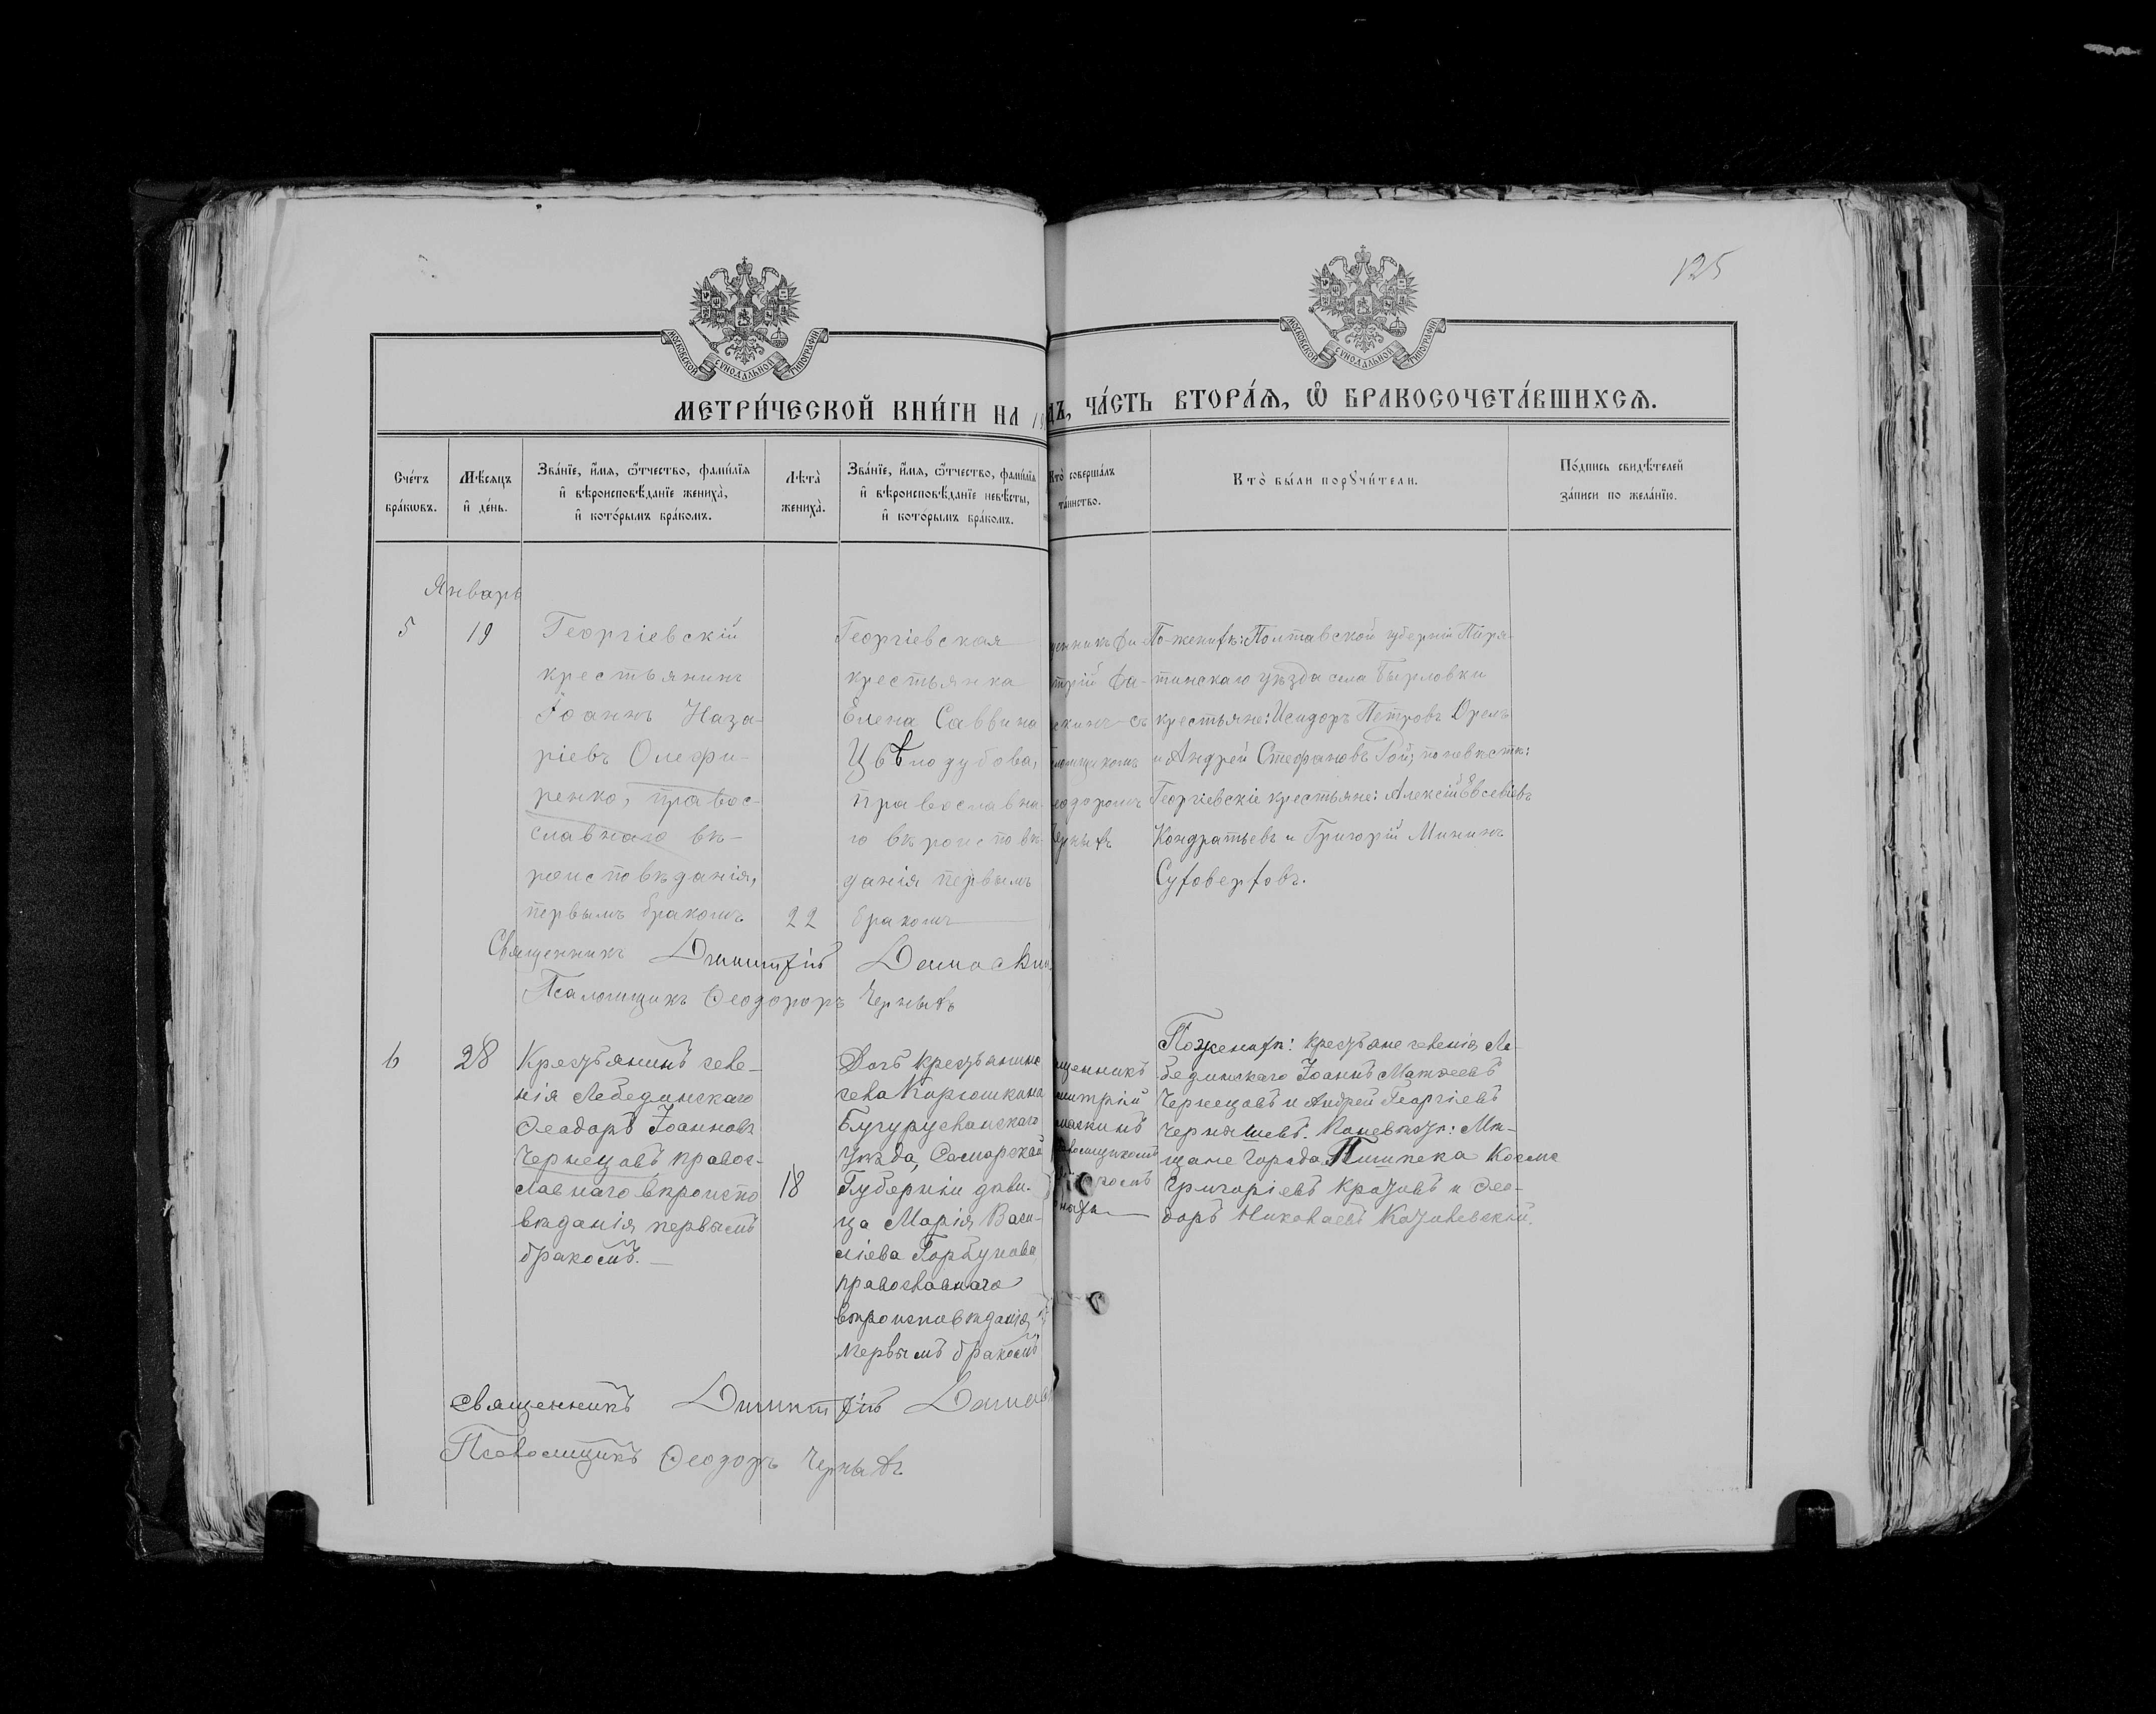 125
МОСКОВСКОЙ СѴНОДАЛЬНОЙ ТИПОГРАФІИ
МОСКОВСКОЙ СѴНОДАЛЬНОЙ ТИПОГРАФІИ
МЕТРИ́ЧЕСКОЙ КНИ́ГИ НА 19
ДЪ, ЧА́СТЬ ВТОРА́Ѧ, Ѽ БРАКОСОЧЕТА́ВШИХСѦ.
Сче́тъ
бра́кѡвъ.
Мѣ́сяцъ
и҆ де́нь.
Зва́нїе, и҆́мя, ѻ҆́тчество, фамѝлїя
и҆ вѣроисповѣ́данїе жениха̀,
и҆ кото́рымъ бра́комъ.
Лѣта̀
жениха̀.
Зва́нїе, и҆́мя, ѻ҆́тчество, фамѝлїя
и҆ вѣроисповѣ́данїе невѣ́сты,
и҆ кото́рымъ бра́комъ.
Кто̀ соверша́лъ
та́инство.
Кто̀ бы́ли порꙋчи́тели.
По́дпись свидѣ́телей
за́писи по жела́нїю.
Январь
5
19
Георгіевскій
крестьянинъ
Іоаннъ Наза-
ріевъ Олефи-
ренко, правос-
славнаго вѣ-
роисповѣданія,
первымъ бракомъ
22
Георгіевская
крестьянка
Елена Саввина
Цѣлодубова,
православна-
го вѣроисповѣ-
данія первымъ
бракомъ
щенникъ Ди
трій Да-
скинъ съ
ломщикомъ
еодоромъ
Черныхъ
По-женихѣ: Полтавской губерніи Пиря-
тинскаго уѣзда села Бырловки
крестьяне: Исидоръ Петровъ Орелъ
и Андрей Стефановъ Гой; по невѣстѣ:
Георгіевскіе крестьяне: Алексій Евсевіевъ
Кондратьевъ и Григорій Мининъ
Суховерховъ.
Священникъ Димитрій Дамаскин
Псаломщикъ Ѳеодоръ Черныхъ
6
28
Крестьянинъ селе-
нія Лебединскаго
Ѳеодоръ Іоанновъ
Чернецовъ правос-
лавнаго вѣроиспо
вѣданія первымъ
бракомъ.
18
Дочь крестьянина
села Кирюшкина
Бугурусланскаго
уѣзда, Самарской
Губерніи дѣви-
ца Марія Васи-
ліева Горбунова,
православнаго
вѣроисповѣданія
первымъ бракомъ
щенникъ
митрій
маскинъ
аломщикомъ
ромъ
ныхъ
По женихѣ: крестьяне селенія Ле-
бединскаго Іоаннъ Матѳеевъ
Чернецовъ и Андрей Георгіевъ
Чернышевъ. По невѣстѣ: Мѣ-
щане города Пишпека Косма
Григоріевъ Кротовъ и Ѳео-
доръ Николаевъ
священникъ Димитрій Дамас
Псаломщикъ Ѳеодоръ Черныхъ